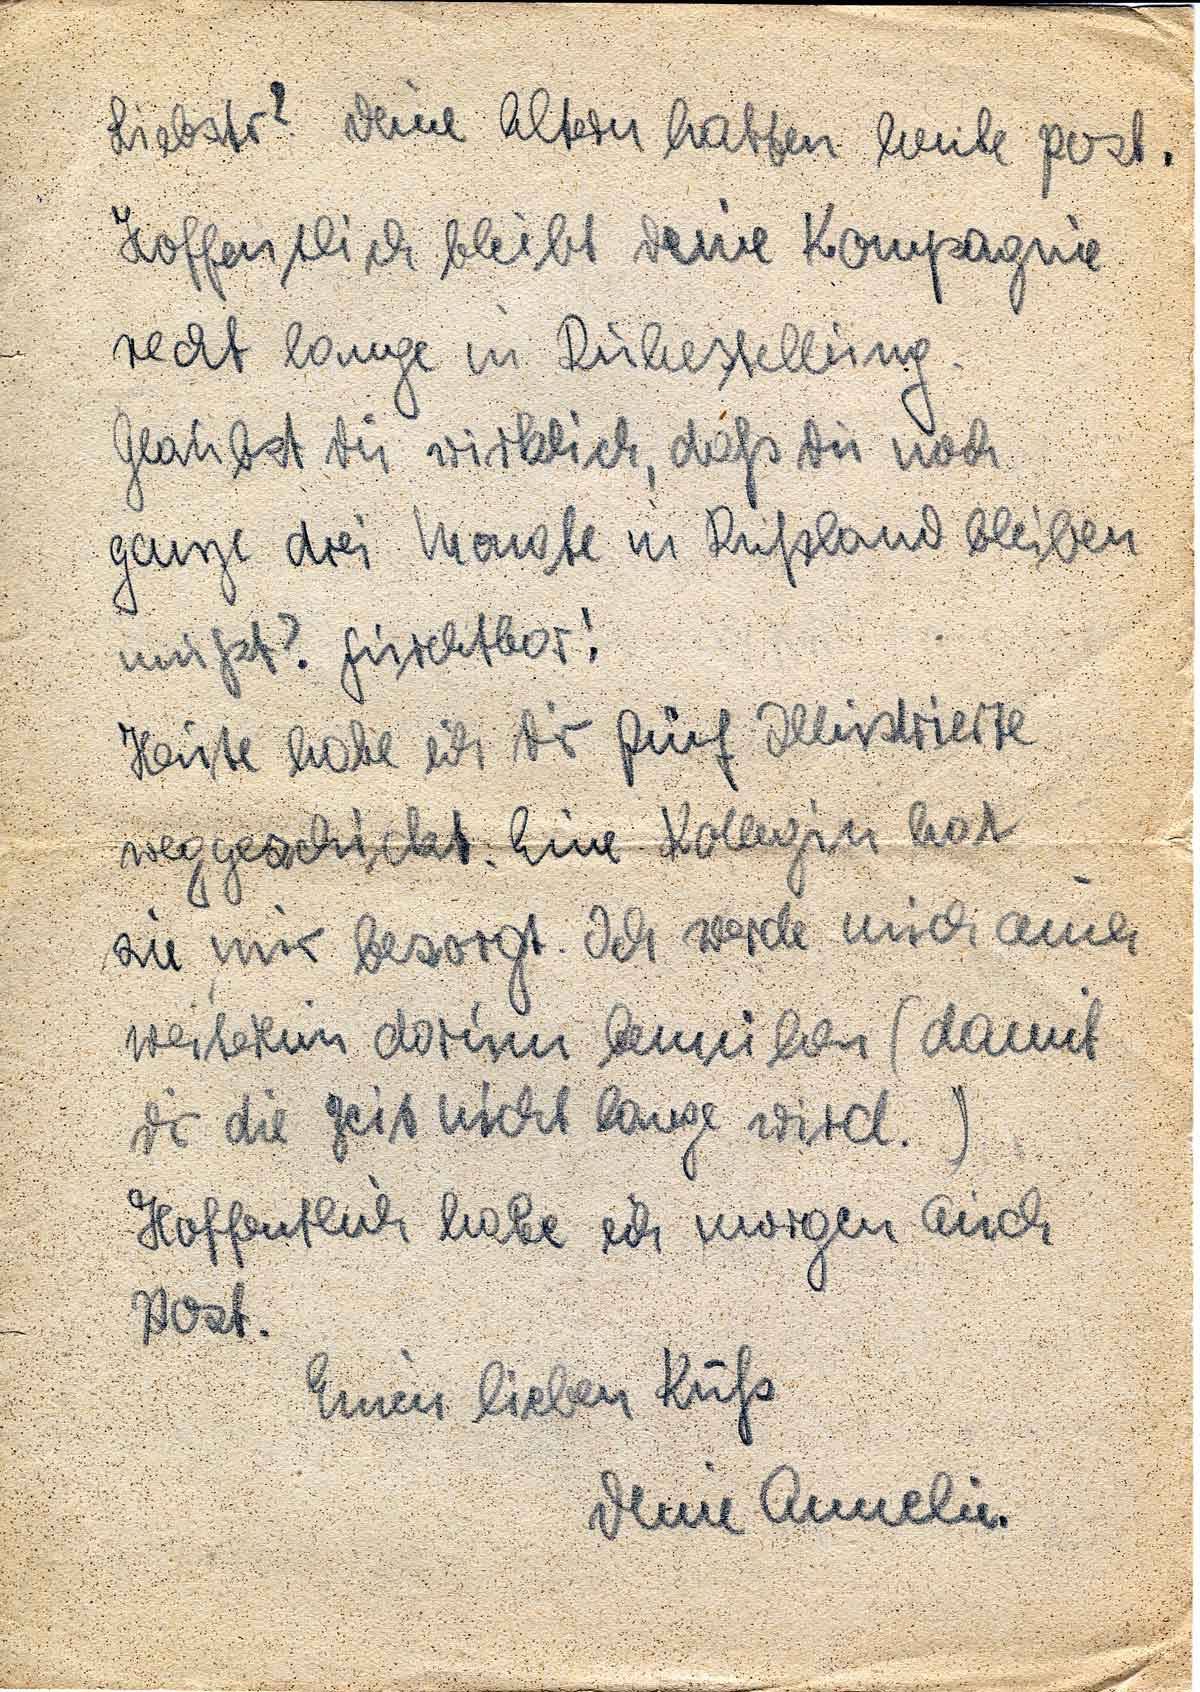 Liebster? Deine Eltern hatten heute post.
Hoffentlich bleibt deine Kompagnie
recht lange in Ruhestellung.
Glaubst Du wirklich, daß Du noch
ganze drei Monate in Rußland bleiben
mußt? Furchtbar!
Heute habe ich Dir fünf Illustrierte
weggeschickt. Eine Kollegin hat
sie mir besorgt. Ich werde mich auch
weiterhin darum bemühen (damit
Dir die Zeit nicht lange wird.)
Hoffentlich habe ich morgen auch
Post.
Einen lieben Kuß
Deine Annelie.